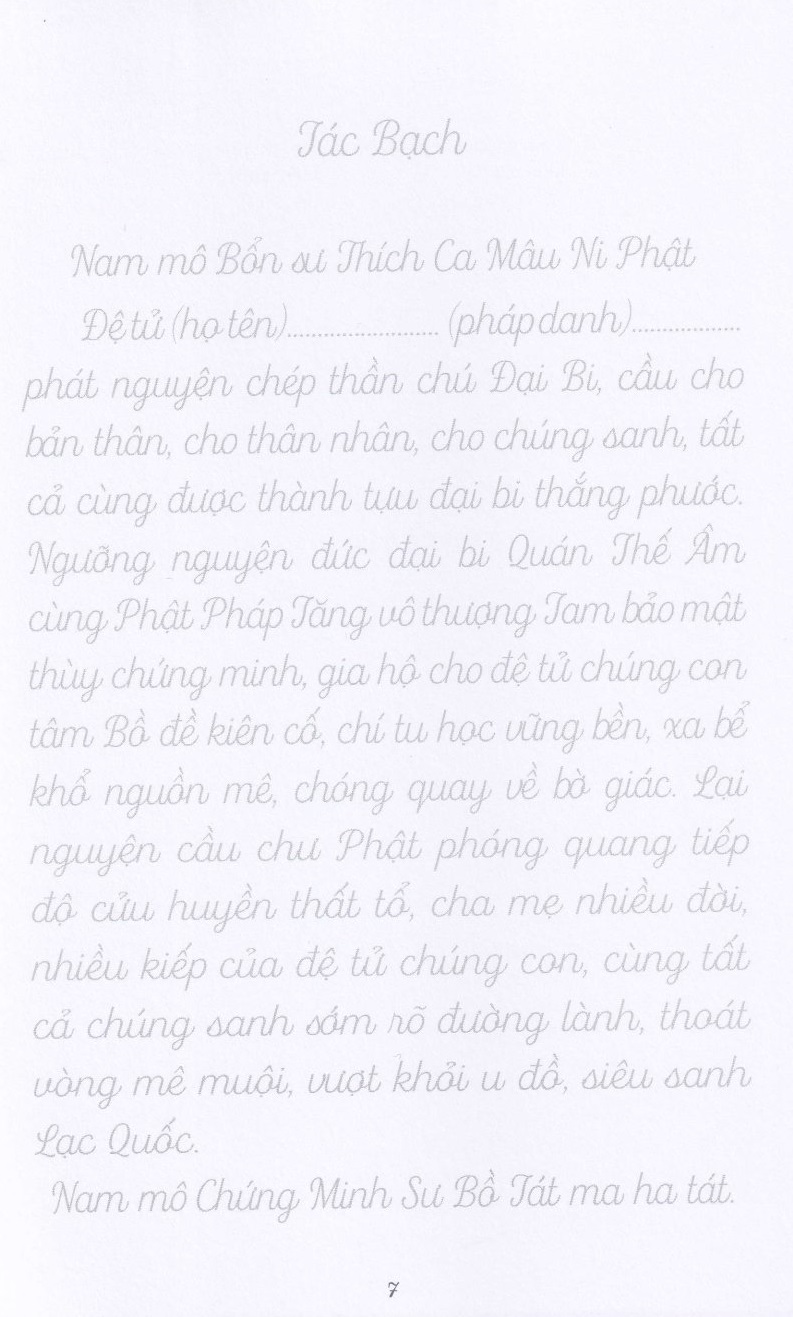 Tác Bạch
Nam mô Bổn sư Thích Ca Mâu Ni Phật
Đệ tử (họ tên)........................ (pháp danh).................
phát nguyện chép thần chú Đại Bi, cầu cho
bản thân, cho thân nhân, cho chúng sanh, tất
cả cùng được thành tựu đại bi thắng phước.
Ngưỡng nguyện đức đại bi Quán Thế Âm
cùng Phật Pháp Tăng vô thượng Tam bảo mật
thùy chứng minh, gia hộ cho đệ tử chúng con
tâm Bồ đề kiên cố, chí tu học vững bền, xa bể
khổ nguồn mê, chóng quay về bờ giác. Lại
nguyện cầu chư Phật phóng quang tiếp
độ cửu huyền thất tổ, cha mẹ nhiều đời,
nhiều kiếp của đệ tử chúng con, cùng tất
cả chúng sanh sớm rõ đường lành, thoát
vòng mê muội, vượt khỏi u đồ, siêu sanh
Lạc Quốc.
Nam mô Chứng Minh Sư Bồ Tát ma ha tát.
7